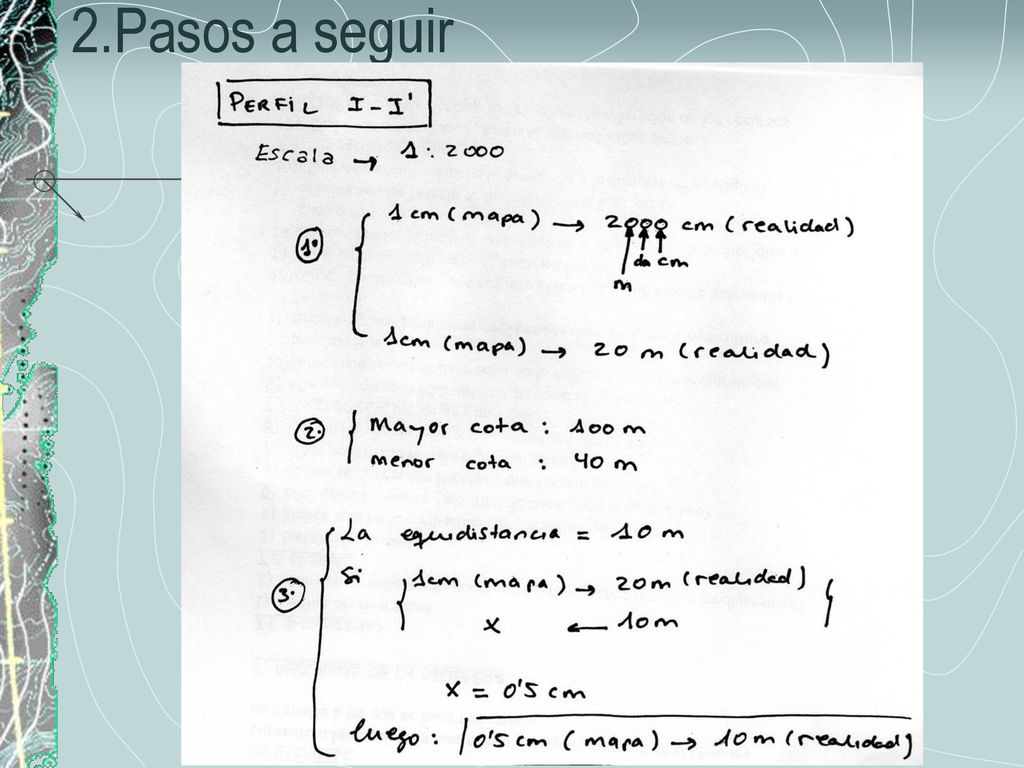 2.Pasos a seguir
PERFIL I-I'
Escala → 1:2000
1º
1 cm (mapa) → 2000 cm (realidad)
m dm cm
1cm (mapa) → 20 m (realidad)
2.
Mayor cota : 100 m
menor cota : 40 m
3.
La equidistancia = 10 m
Si 1cm (mapa) → 20m (realidad)
x ← 10m
x = 0'5 cm
luego: 0'5 cm (mapa) → 10 m (realidad)